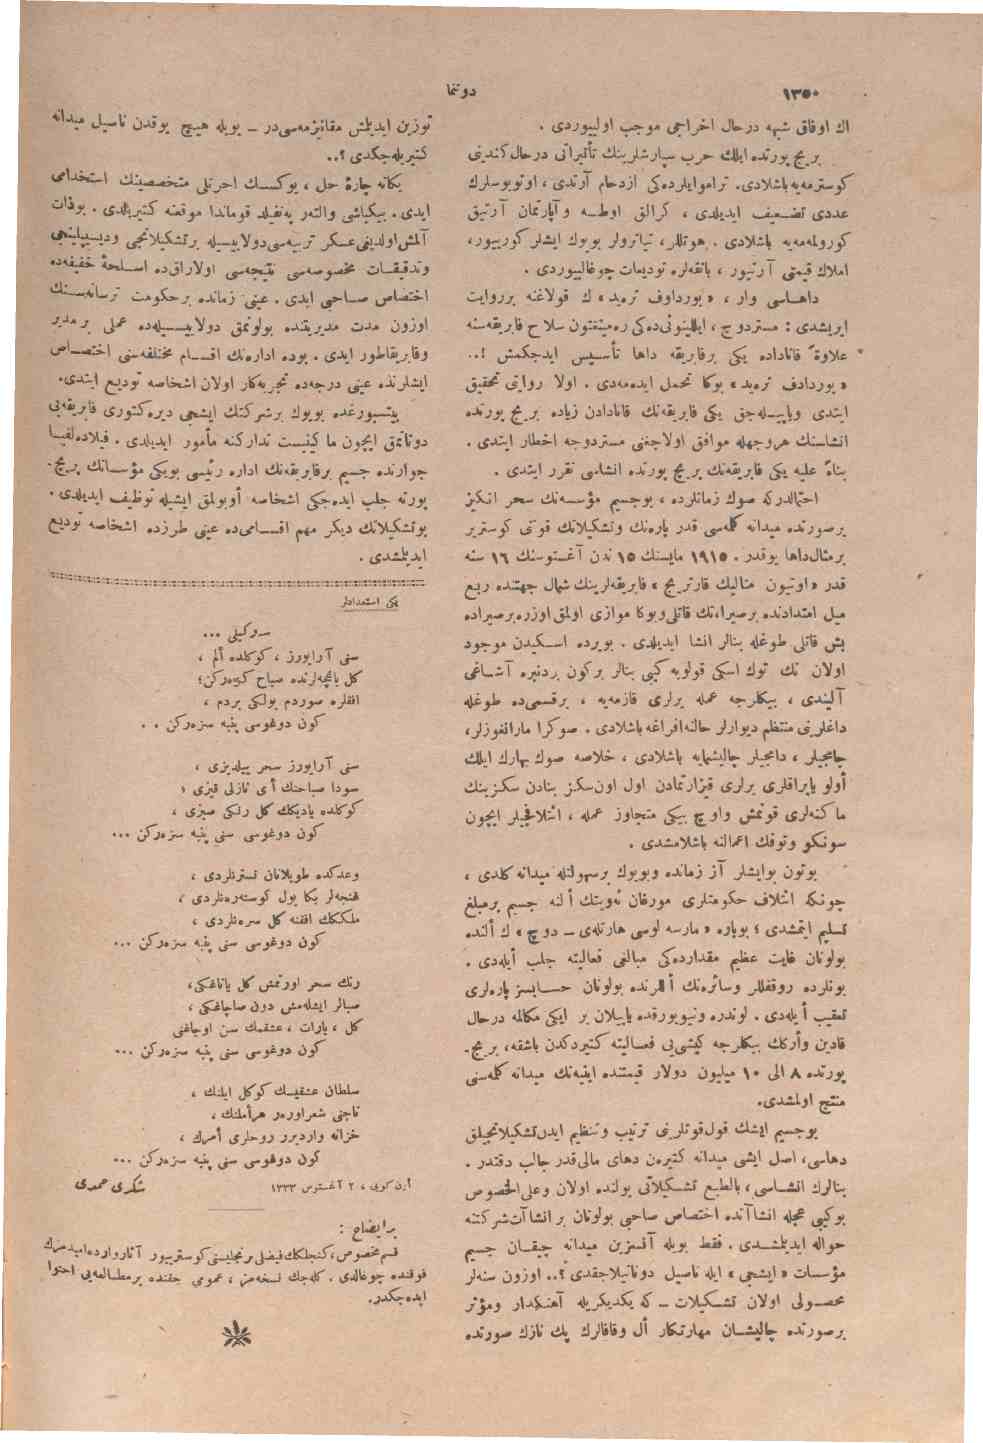 ١٣٥٠
دوننما
اك اوفاق شبهه درحال اخراجی موجب اولییوردی .
بریج پورتده ایلك حرب سپارشلرینك تأثیراتی درحال كندینی
كوسترمه‌یه باشلادی. تراموایلرده‌كی ازدحام آرتدی ، اوتوبوسلرك
عددی تضعیف ایدیلدی ، كرالق اوطه وآپارتمان آرتیق
كورولمه‌مه‌یه باشلادی . هوتللر، تیاترولر بویوك ایشلر كورییور،
املاك قیمتی آرتیور ، بانقه‌لره تودیعات چوغالییوردی .
داهاسی وار ، «بورداوف تره‌ید» ك قولاغنه برروایت
ایریشدی : مستردوج ، ایللینوئی‌ده‌كی ره‌مینغتون سلاح فابریقه‌سنه
علاوةً قانااداده یكی برفابریقه داها تأسیس ایده‌جكمش !..
« بوردادف تره‌ید» بوكا تحمل ایده‌مه‌دی . اولا روایتی تحقیق
ایتدی وپاپیله‌جق یكی فابریقه‌نك قانادادن زیاده بریج پورتده
انشاسنك هروجهله موافق اولاجغنی مستردوجه اخطار ایتدی .
بناءً علیه یكی فابریقه‌نك بریج پورتده انشاسی تقرر ایتدی .
احتمالدركه صوك زمانلرده ، بوجسیم مؤسسه‌نك سحر انكیز
برصورتده میدانه كلمه‌سی قدر پاره‌نك وتشكیلاتك قوتنی كوستریر
برمثال داها یوقدر . ١٩١٥ مایسنك ١٥ ندن آغستوسنك ١٦ سنه
قدر « اوتیون متالیك قارتریج » فابریقه‌لرینك شمال جهتنده ربع
میل امتدادنده برصیراتك قاتلی وبوكا موازی اولمق اوزره برصیراده
بش قاتلی طوغله بنالر انشا ایدیلدی . بویرده اسكیدن موجود
اولان تك توك اسكی قولوبه كیبی بنالر بركون ردنبره آشاغی
آلیندی ، بیكلرجه عمله برلری قازمه‌یه ، برقسمی‌ده طوغله
داغلرینی منتظم دیوارلر حالنه افراغه باشلادی . صوكرا مارانغوزلر،
جامجیلر ، دامجیلر چالیشمایه باشلادی ، خلاصه صوك بهارك ایلك
أولو یاپراقلری برلری قیزارتمادن اول اون‌سكز بنادن سكزینك
ماكنه‌لری قونمش واوچ بیكی متجاوز عمله ، ائتلافجیلر ایچون
سونكو وتوفك اعمالنه باشلامشدی .
بوتون بوایشلر آز زمانده وبویوك برسهولتله میدانه كلدی ،
چونكه ائتلاف حكومتلری مورقان نه‌ویتك أ لنه جسیم برمبلغ
تسلیم ایتمشدی ؛ بوپاره « مارسه لوسی هارتله‌ی ــ دوچ » ك ألنده
بولونان غایت عظیم مقدارده‌كی مبالغی فعالیته جلب أیله‌دی .
بونلرده روقفللر وسائره‌نك أللرنده بولونان حسابسز پاره‌لری
تعقیب أیله‌دی . لوندره ونیویورقده یاپیلان بر ایكی مكالمه درحال
قادین وأركك بیكلرجه كیشی‌یی فعالیته كتیردكدن باشقه ، بریج-
پورتده ٨ الی ١٠ میلیون دولار قیمتنده ابنیه‌نك میدانه كلمه‌سنی
منتج اولمشدی.
بوجسیم ایشك قول‌قوتلرینی ترتیب وتنظیم ایدن‌تشكیلاتجیلق
دهاسی، اصل ایشی میدانه كتیره‌ن دهای مالی‌قدر جالب دقتدر .
بنالرك انشاسی ، بالطبع تشكیلاتی یولنده اولان وعلی الخصوص
بوكیبی عجله انشاآنده اختصاص صاحبی بولونان برانشاآت‌شركتنه
حواله ایدیلمشدی . فقط بویله آقسزین میدانه چیقان جسیم
مؤسسات « ایشجی » ایله ناصیل دوناتیلاجقدی ؟.. اوزون سنه‌لر
محصولی اولان تشكیلات ــ كه یكدیكریله آهنكدار ومؤثر
برصورتده چالیشان مهارتكار أل وقافالرك پك نازك صورتده
توزین ایدیلمش مقانیزمه‌سی‌در ــ بویله هیچ یوقدن ناصیل میدانه
كتیریله‌جكدی ؟..
یكانه چارهٔ حل ، یوكسك اجرتلی متخصصینك استخدامی
ایدی . بیكباشی والتهر په‌نفیلد قوماندا موقعنه كتیریلدی . بوذات
آلمش‌اولدیغی‌عسكر تربیه‌سی‌دولاییسیله برتشكیلاتجی ودیسیپلینجی
وتدقیقات مخصوصه‌سی نتیجه‌سی اولاراق‌ده اسلحهٔ خفیفه‌ده
اختصاص صاحبی ایدی . عینی زمانده برحكومت ترسانه‌سنك
اوزون مدت مدیریتنده بولونمق دولاییسیله‌ده عملی برمدیر
وفابریقاطور ایدی . بوده اداره‌نك اقسام مختلفه‌سنی اختصاص
ایشلرنده عینی درجه‌ده تجربه‌كار اولان اشخاصه تودیع ایتدی.
پیتسبورغده بویوك برشركتك ایشجی دیره‌كتوری فابریقه‌یی
دوناتمق ایچون ما كینیست تداركنه مأمور ایدیلدی . فیلادلفیا
جوارنده جسیم برفابریقه‌نك اداره رئیسی بویكی مؤسسانك بریج-
پورته جلب ایده‌جكی اشخاصه أوبولمق ایشیله توظیف ایدیلدی.
بوتشكیلاتك دیكر مهم اقسامی‌ده عینی طرزده اشخاصه تودیع
ایدیلمشدی .
یكی استعدادلر
سه‌وكیلی ...
سنی آرایورز ، كوكلده ألم ،
كل باغچه‌لرنده صباح كزه‌ركن؛
افقلره صوردم یولكی بردم ،
كون دوغوسی پنبه سزه‌ركن . .
سنی آرایورز سحر ییلدیزی ،
سودا صباحنك أی نازلی قیزی ؛
كوكلده یادیكك كل رنكی صیزی ،
كون دوغوسی سنی پنبه سزه‌ركن ...
وعدكده طوپلانان نسترنلردی ،
غنجه‌لر بكا یول كوسته‌ره‌نلردی ،
ملككك افقنه كل سره‌نلردی ،
كون دوغوسی سنی پنبه سزه‌ركن ...
رنك سحر اورتمش كل یاناغكی،
صبالر ایشله‌مش دون صاچاغكی ،
كل ، یارات ، عشقمك سن اوجاغنی
كون دوغوسی سنی پنبه سزه‌ركن ...
سلطان عشقیسك كوكل ایلنك ،
تاجنی شعراوره‌ر هرأملنك ،
خزانه واردیرر روحلری أمرك ،
كون دوغوسی سنی پنبه سزه‌ركن ...
أرن كویی ، ٢ آغستوس ١٣٣٣
شكری حمدی
برایضاح :
قسم مخصوص، كنجلكك‌فیضلی‌برتجلیسنی‌كوستریور آثارواردهٔ‌امیدمزك
فوقنده چوغالدی . كله‌جك نسخه‌مز ، عمومی حقنده برمطالعه‌یی احتوا
ایده‌جكدر.